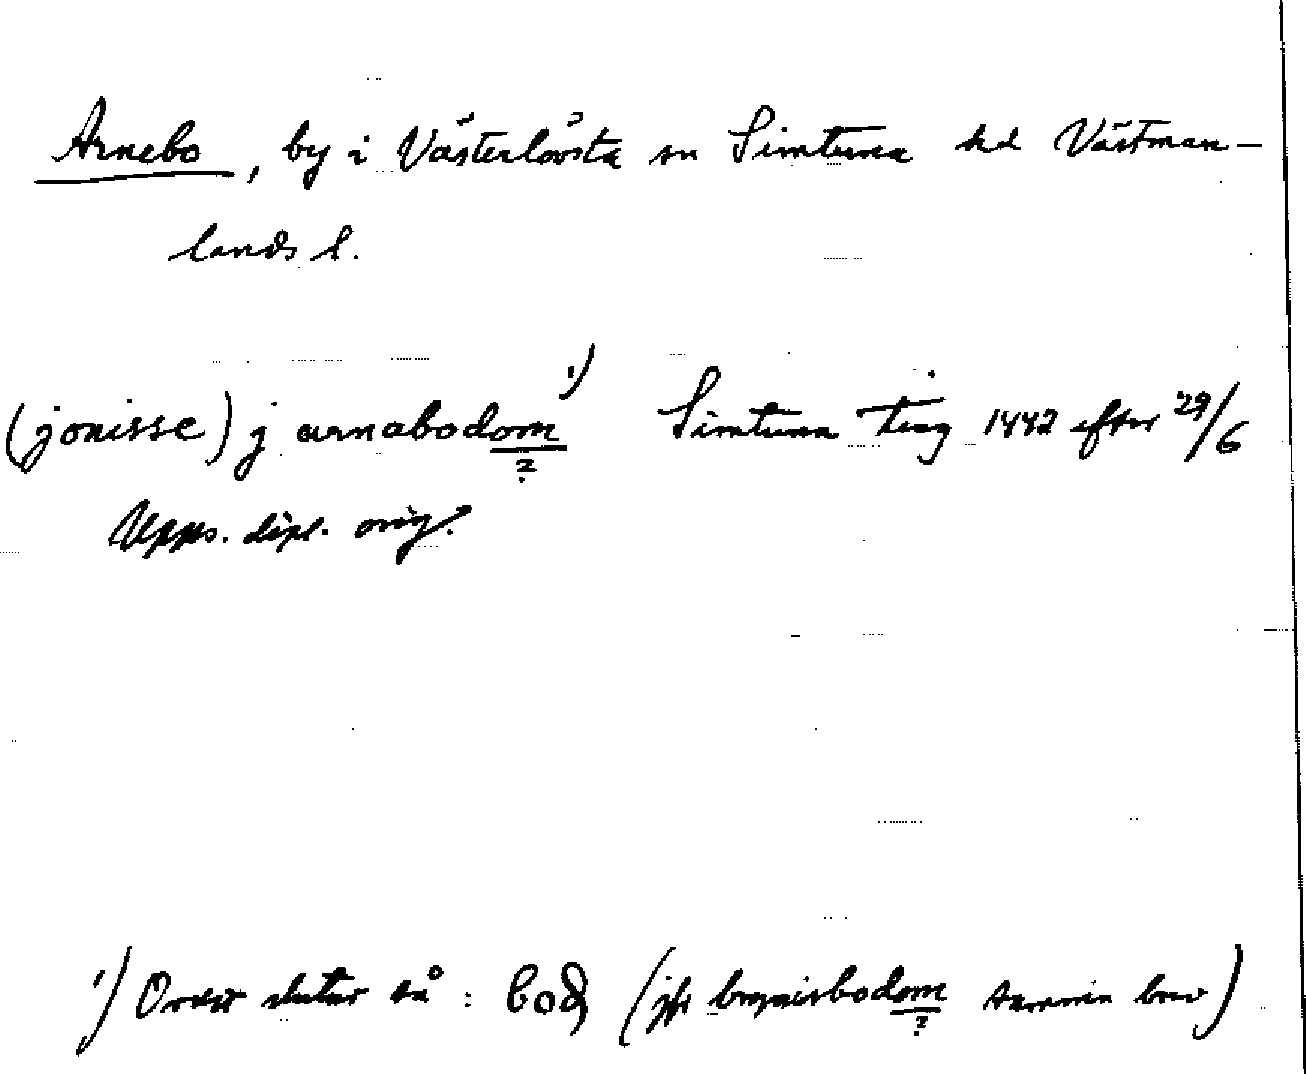 Arnebo, by i Västerlövsta sn Simtuna hd Västman-
lands l.
(jonisse) j arnabodom 1) Simtuna ting 1442 efter 29/6
?
Upps. dipl. orig.
1) Ordet slutar så: bod (jfr bognisbodom samma brev)
?